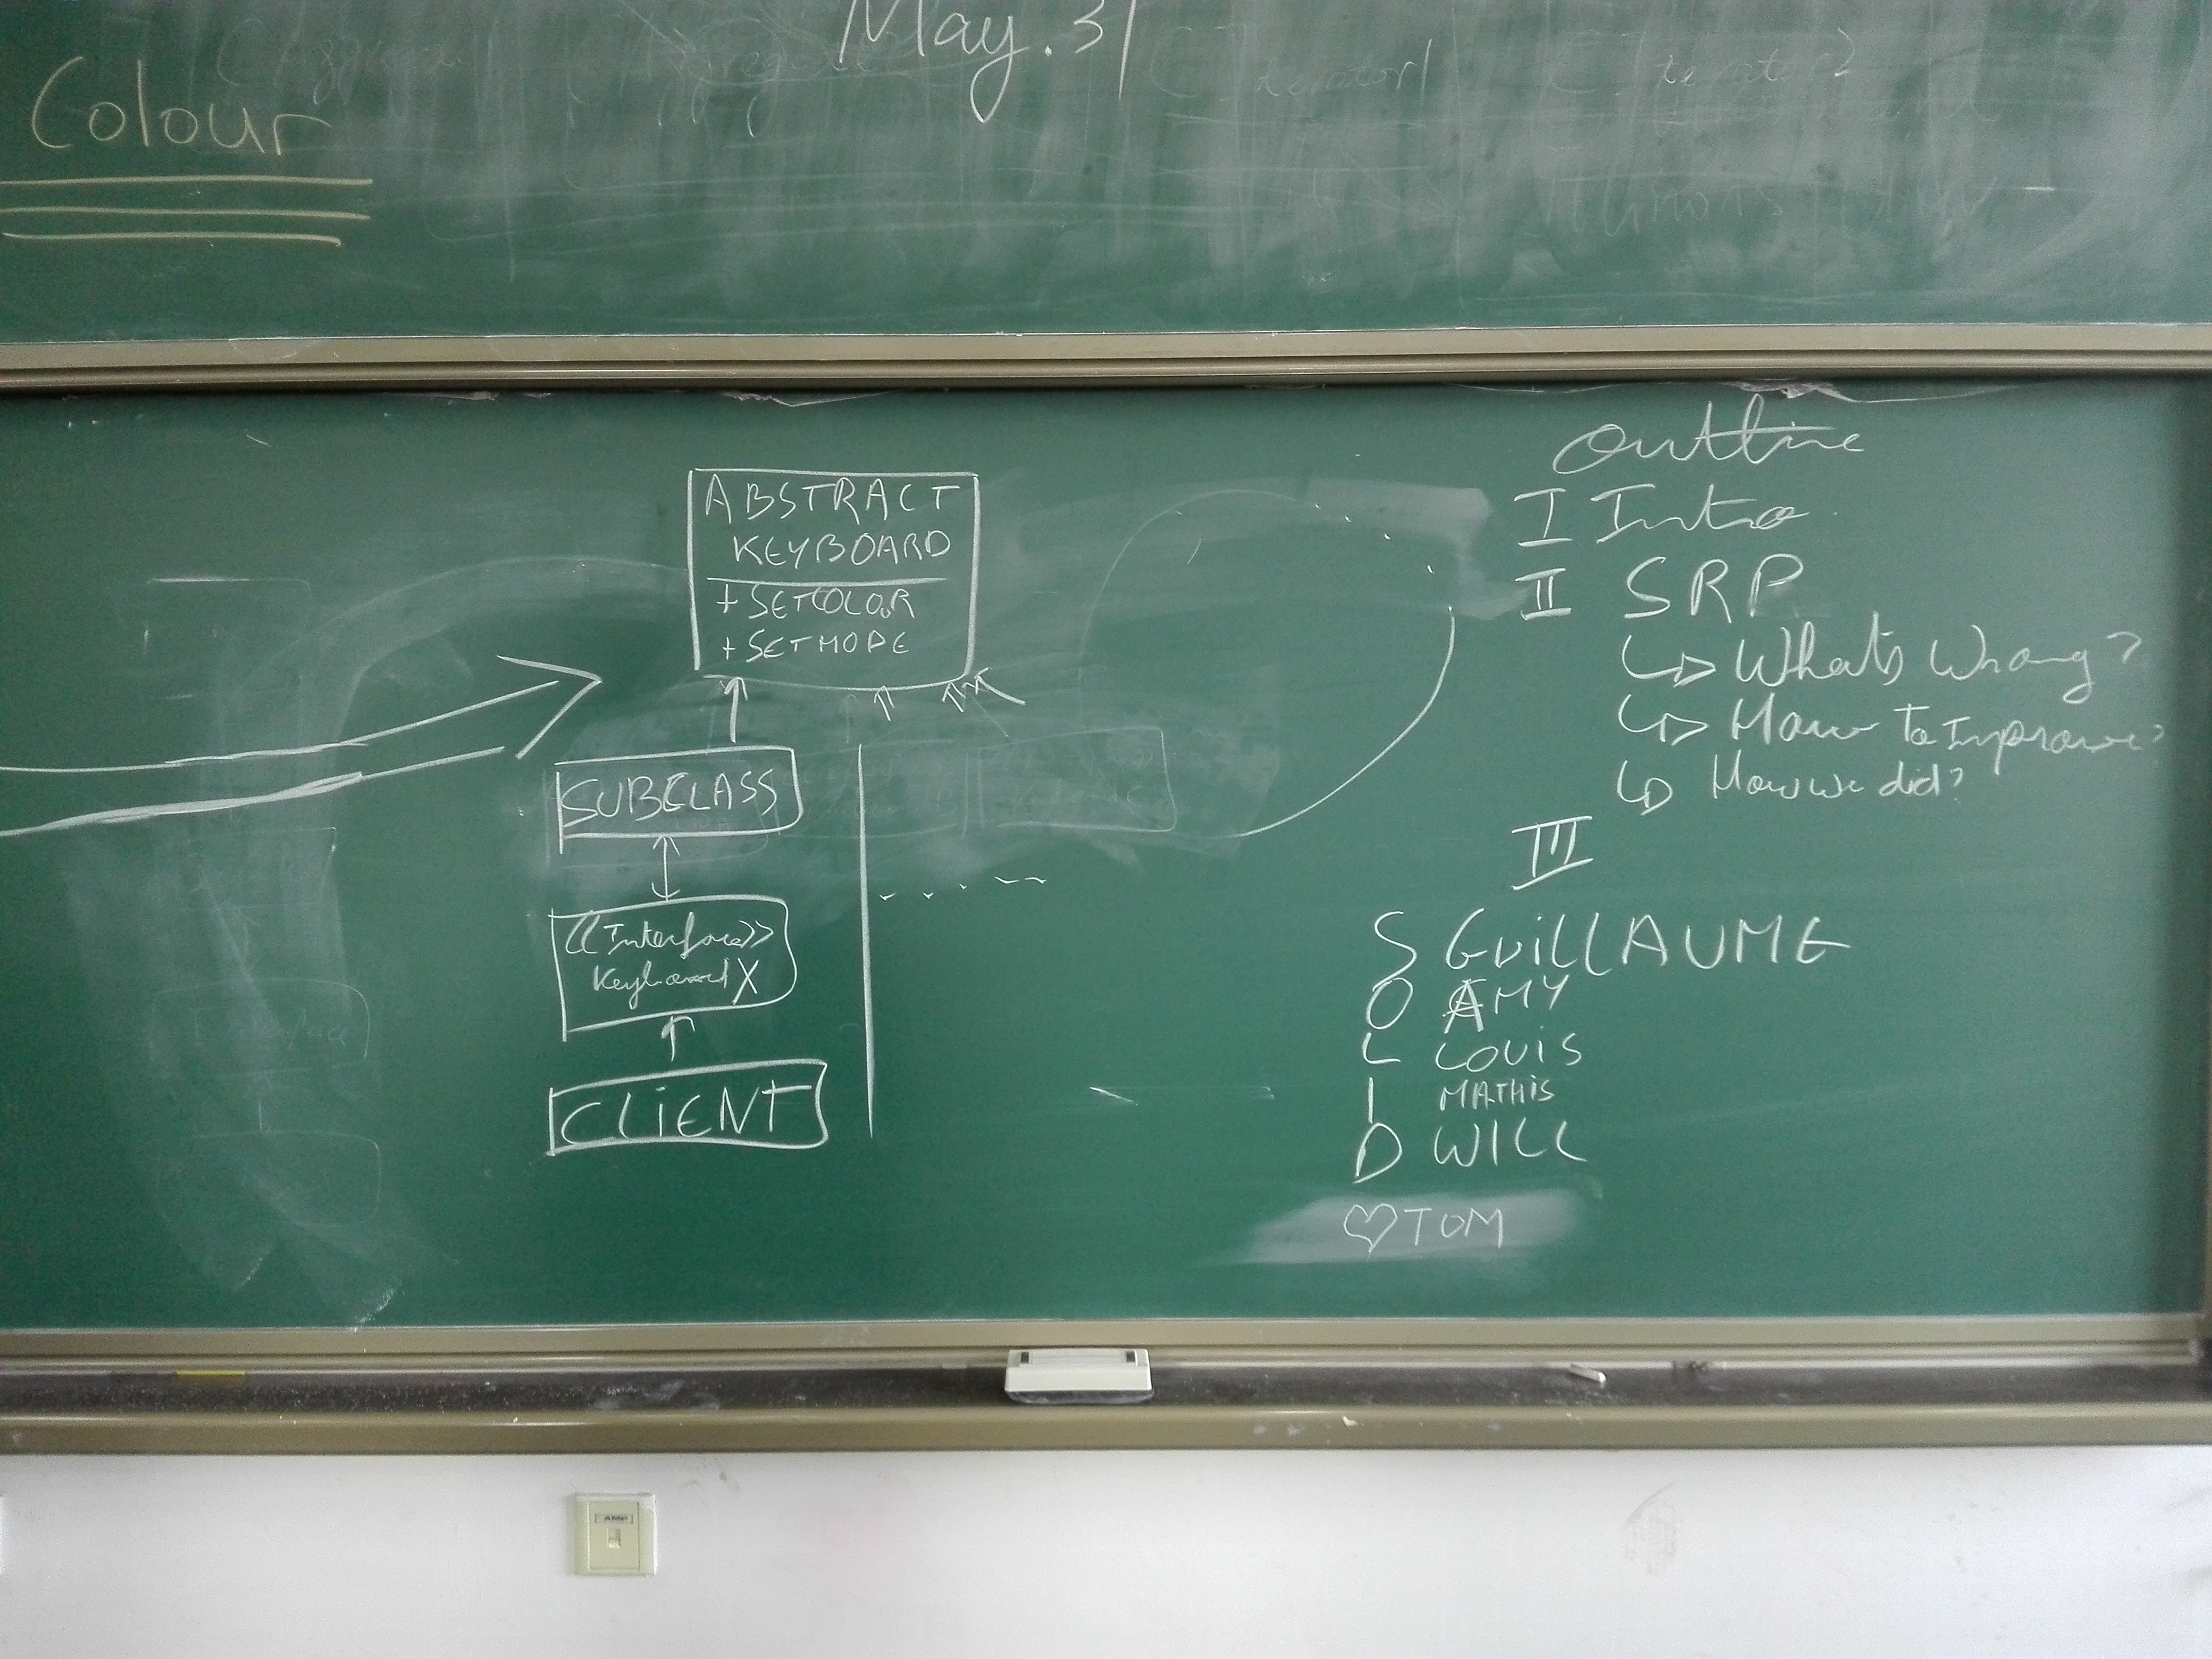 May. 31
Colour
ABSTRACT
KEYBOARD
+ SETCOLOR
+ SETMODE
SUBCLASS
<<Interface>>
Keyboard X
CLIENT
Outline
I Intro
II SRP
What's Wrong?
How To Improve?
How we did?
III
S GUiLLAUME
O AMY
L LOUIS
I MATHIS
D WILL
♡ TOM
AMP